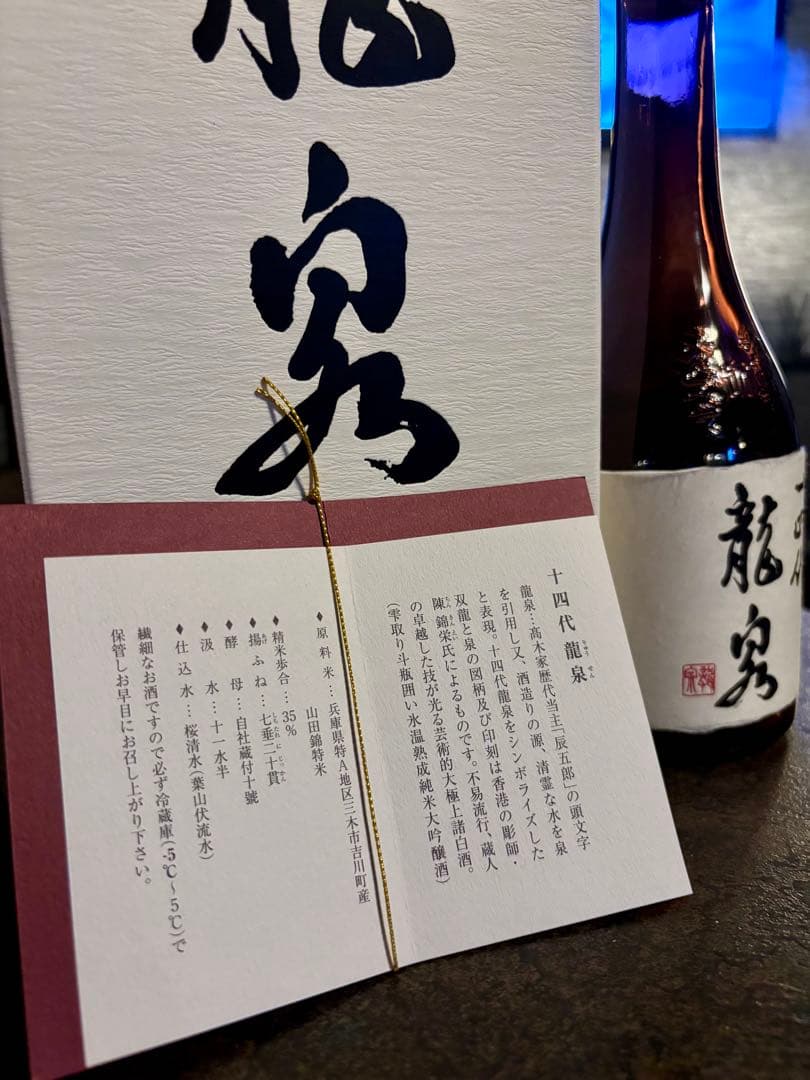 龍泉
十四代 龍泉
りゅう せん
龍泉…髙木家歴代当主「辰五郎」の頭文字
を引用し又、酒造りの源、清靈な水を泉
と表現。十四代龍泉をシンボライズした
双龍と泉の図柄及び印刻は香港の彫師・
陳錦栄氏によるものです。不易流行、蔵人
の卓越した技が光る芸術的大極上諸白酒。
(雫取り斗瓶囲い氷温熟成純米大吟醸酒)
♦原料米…兵庫県特A地区三木市吉川町産
山田錦特米
♦精米歩合…35%
♦揚ふね…七垂二十貫
あげ
しちたれ にじっかん
♦酵母…自社蔵付十號
♦汲水…十一水半
♦仕込水…桜清水(葉山伏流水)
繊細なお酒ですので必ず冷蔵庫(-5℃～5℃)で
保管しお早目にお召し上がり下さい。
龍泉